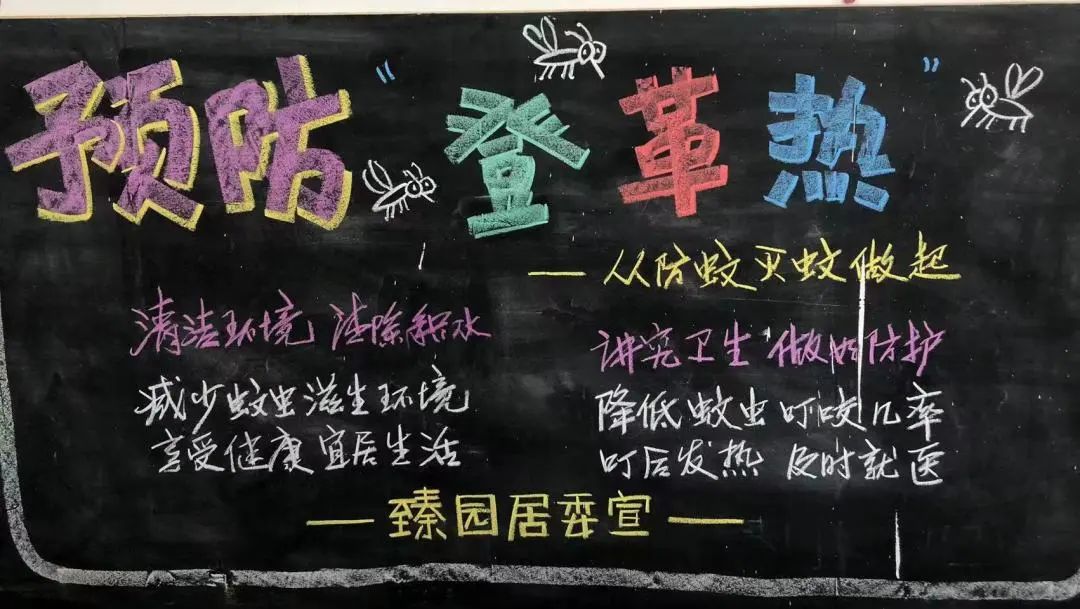 预防“登革热”
—从防蚊灭蚊做起
清洁环境 清除积水
减少蚊虫滋生环境
享受健康宜居生活
讲究卫生 做好防护
降低蚊虫叮咬几率
叮后发热 及时就医
—臻园居委宣—